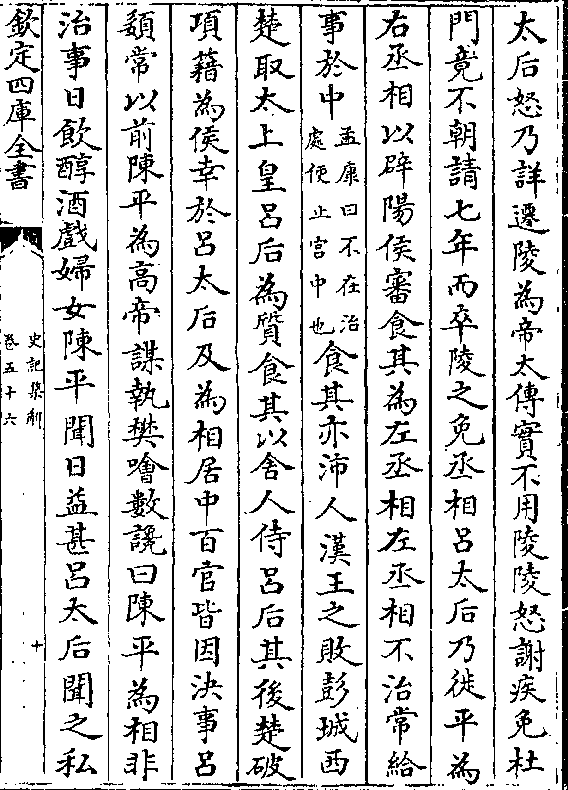 太后怒乃詳遷陵為帝太傅實不用陵陵怒謝疾免杜
門竟不朝請七年而卒陵之免丞相呂太后乃徙平為
右丞相以辟陽侯審食其為左丞相左丞相不治常給
事於中孟康曰不在治處使止宫中也食其亦沛人漢王之敗彭城西
楚取太上皇呂后為質食其以舍人侍呂后其後楚破
項籍為侯幸於呂太后及為相居中百官皆因決事呂
頦常以前陳平為高帝謀執樊噲數讒曰陳平為相非
治事日飲醇酒戲婦女陳平聞日益甚呂太后聞之私
欽定四庫全書
史記集解
卷五十六
十